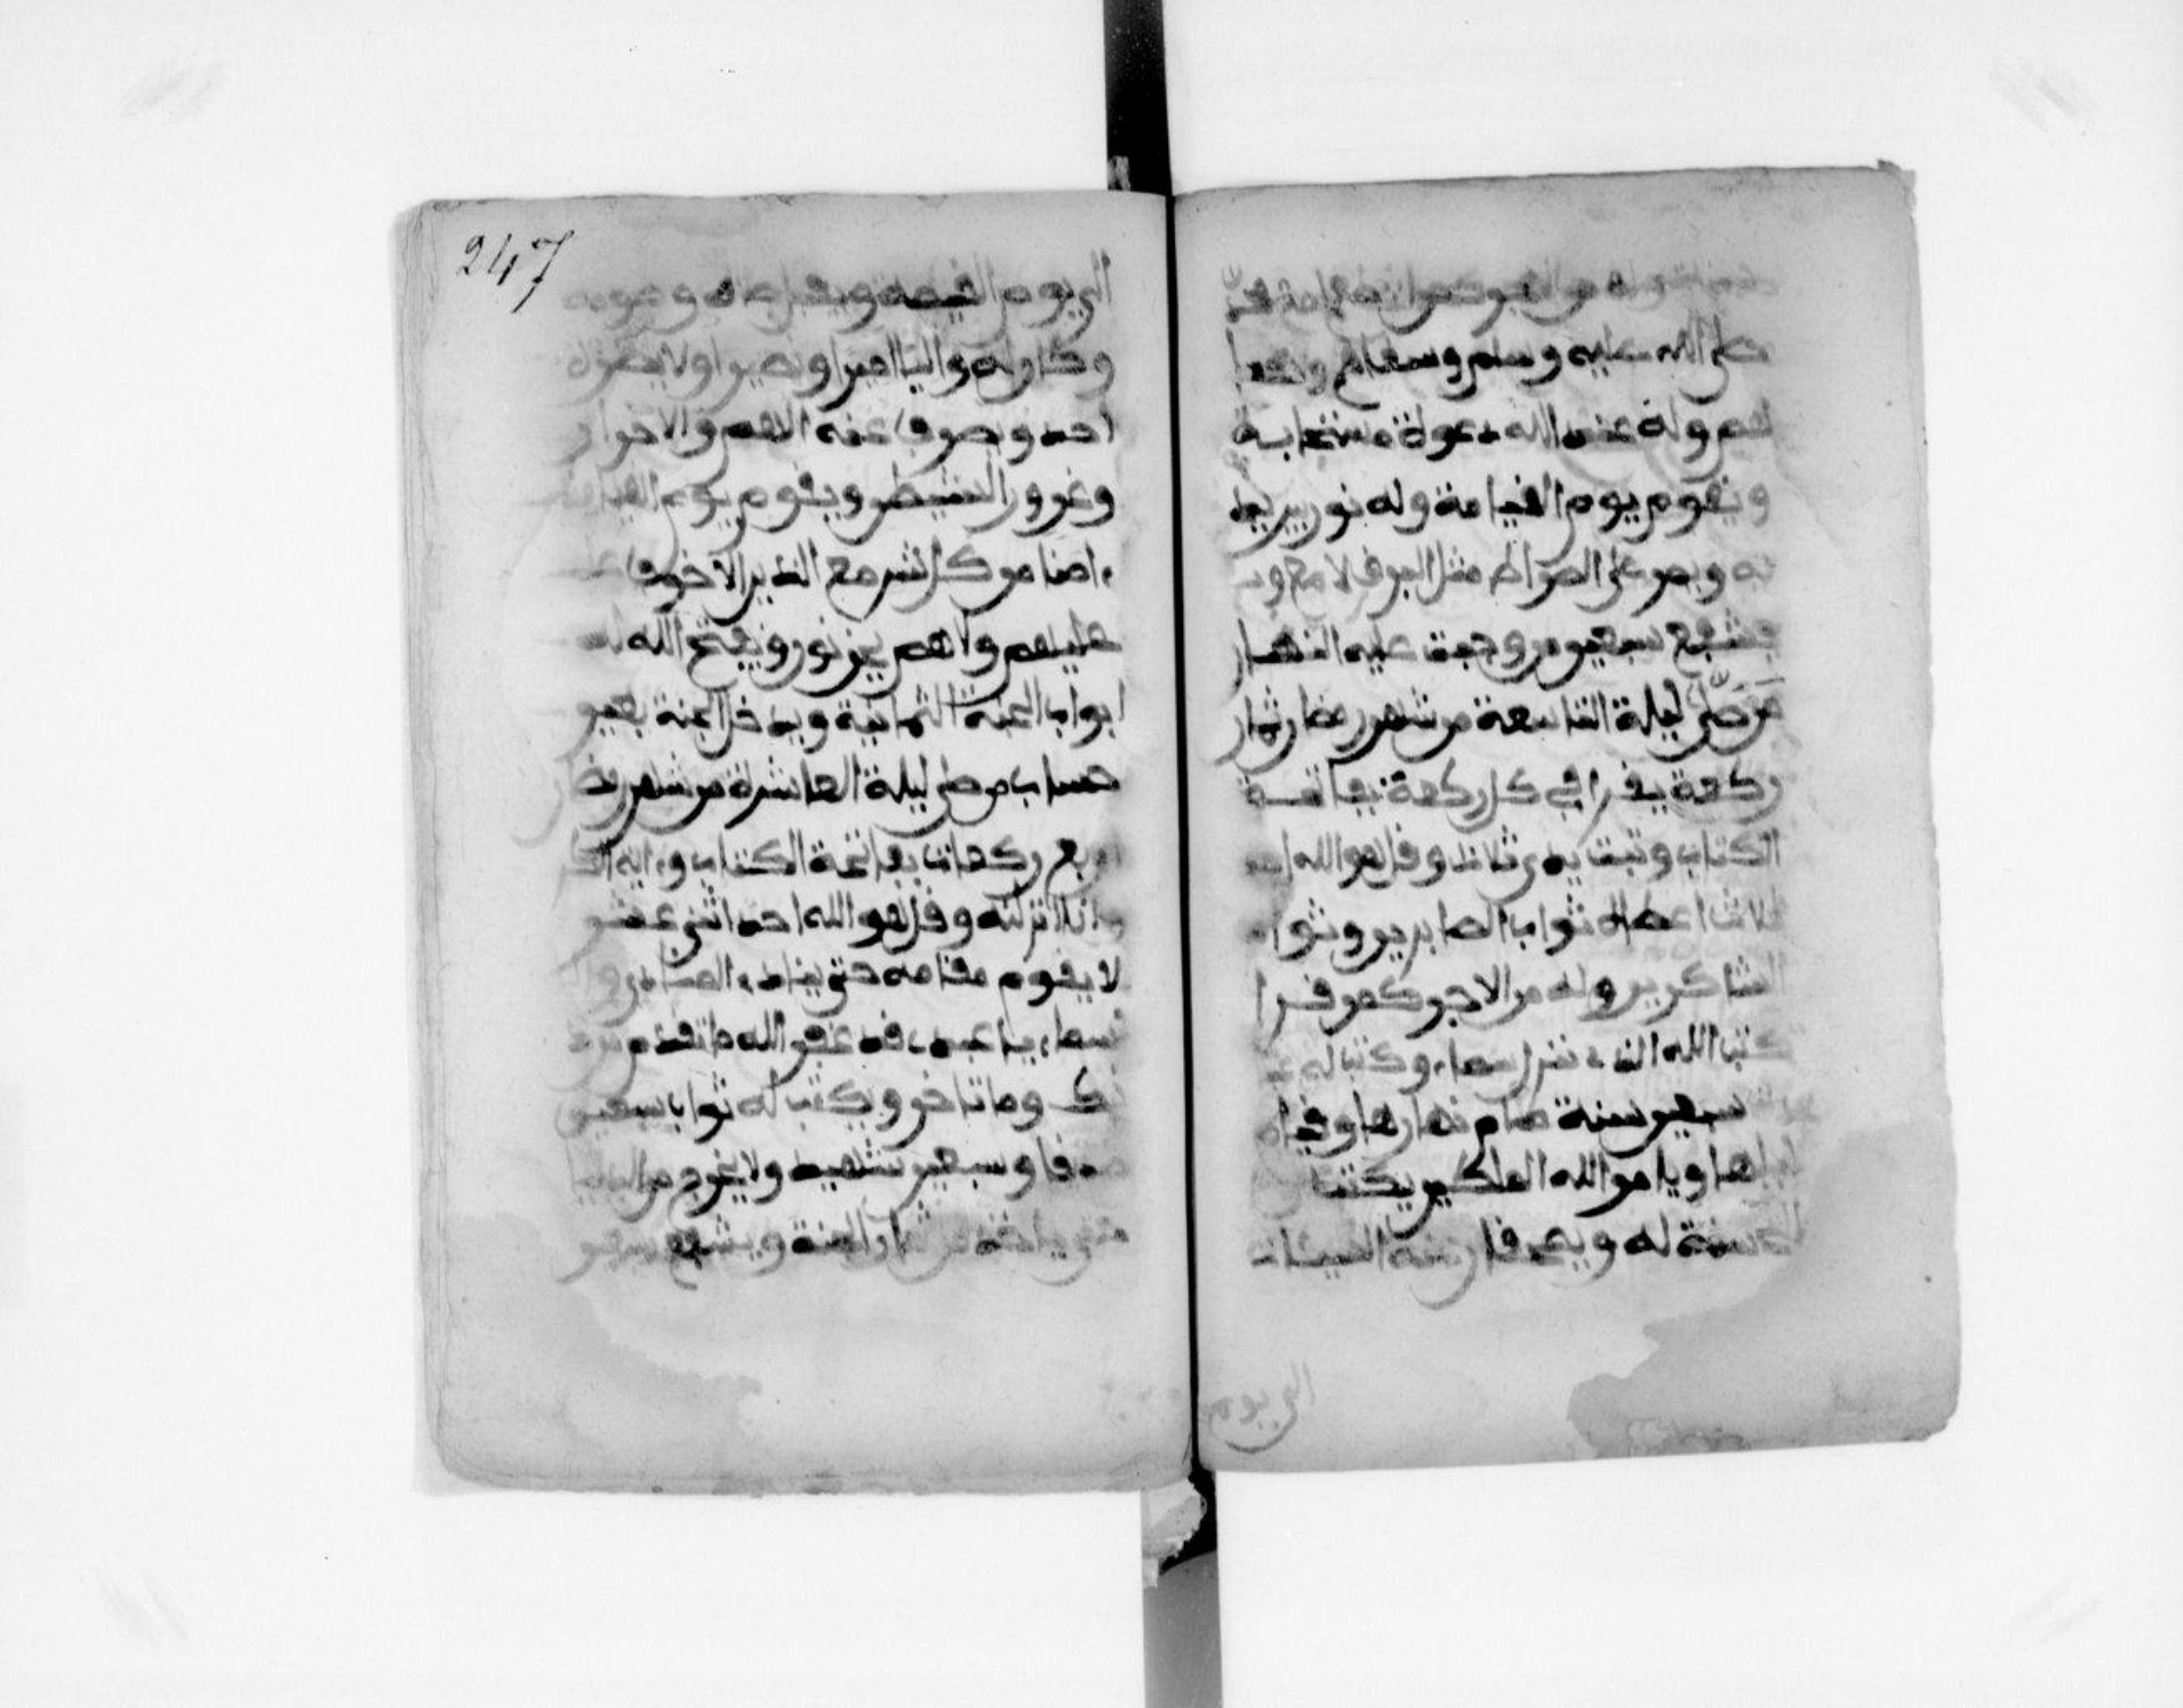 صلى الله عليه وسلم وسعا لهم
لهم وله عند الله دعوة مستجابة
ويقوم يوم القيامة وله نور بين يد
يه ويمر على الصراط مثل البرق لامع و
يشفع سبعين من وجبت عليه النار
من صلى ليلة التاسعة من شهر رمضان ثمان
ركعة يقرا في كل ركعة بفاتحة
الكتاب وتبت يدى ثلاث وقل هو الله احد
ثلاث اعطاه ثواب الصابرين وثواب
الشاكرين وله من الاجر كمن قرا
كتب الله الذي نزل من السماء وكتب له
سبعين سنة صام نهارها وقيام
ليلها ويامر الله الملكين يكتب
الحسنة له ويمحوان عنه السيئات
الى يوم
247
الى يوم القيمة
وكان له واليا امينا ونصيرا ولا يضره
احد ويصرف عنه الاهم والاحزان
وغرور الشيطن ويقوم يوم القيامة
ءامنا من كل شر مع الذين لا خوف
عليهم ولا هم يحزنون ويفتح الله له
ابواب الجنة الثمانية ويدخل الجنة بغير
حساب من صلى ليلة العاشرة من شهر رمضان
اربع ركعات بفاتحة الكتاب وءاية الكر
وانا انزلنه وقل هو الله احد اثنى عشر
لا يقوم مقامه حتى ينادي المنادي
السماء يا عبدي قد غفر الله ما تقدم من ذ
نبك وما تاخر ويكتب له ثواب سبعين
صدقا وسبعين شهيد ولا يخرج من الدنيا
حتى ياكل من ثمار الجنة ويشفع